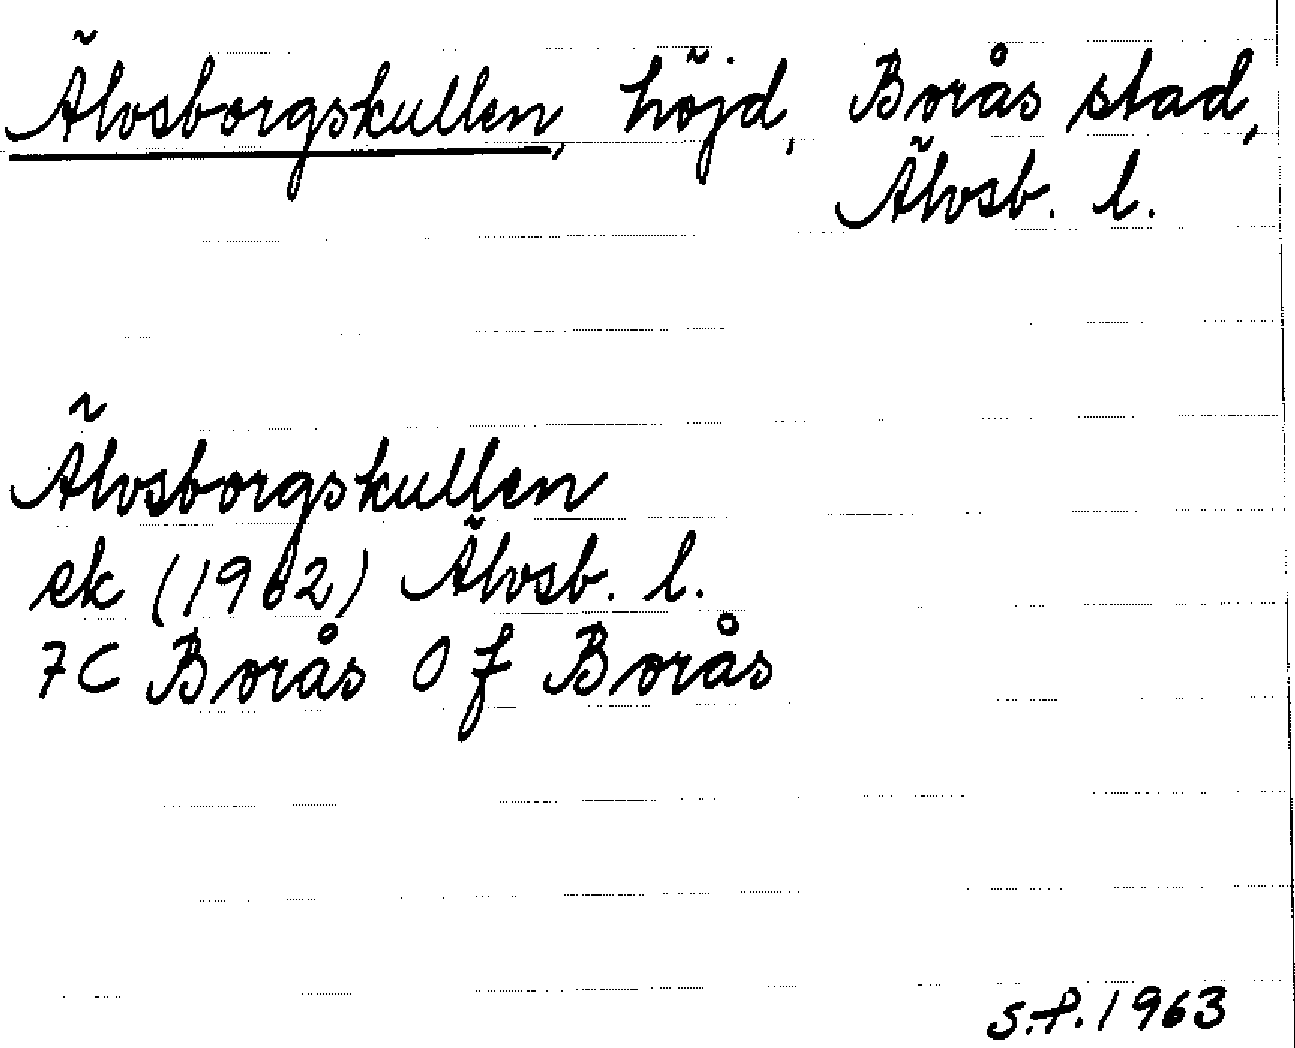 Älvsborgskullen, höjd, Borås stad,
Älvsb. l.
Älvsborgskullen
ek (1962) Älvsb. l.
7C Borås 0 f Borås
S.F. 1963